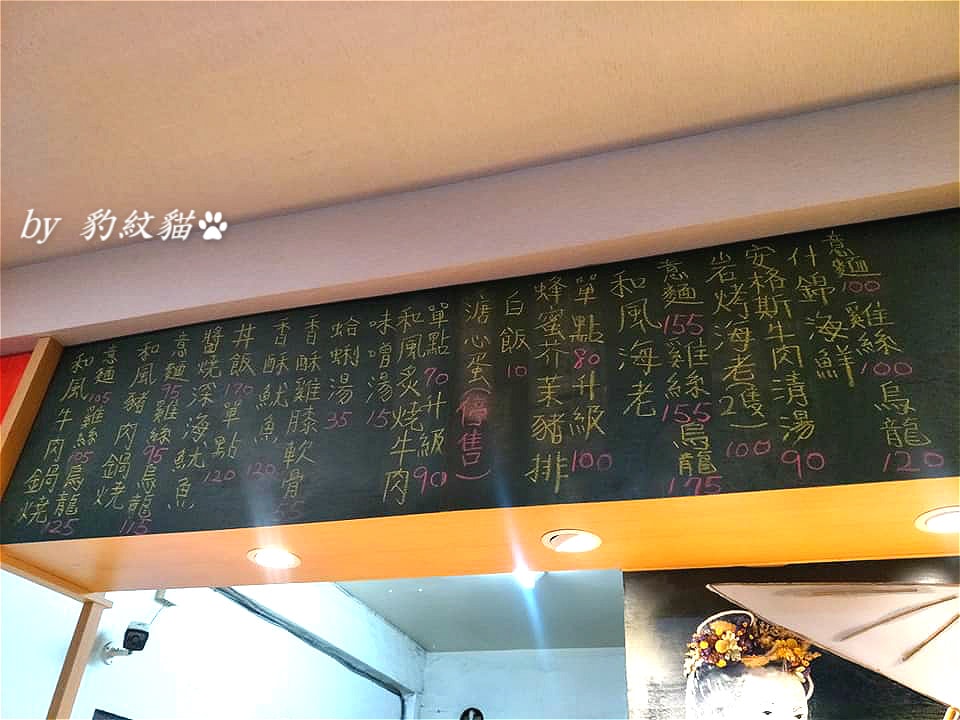 by 豹紋貓
意麵100雞絲100烏龍120
什錦海鮮
安格斯牛肉清湯90
岩烤海老2隻)100
意麵155雞絲155烏龍175
和風海老
單點80升級100
蜂蜜芥茉豬排
白飯10
溏心蛋(停售)
單點70升級90
和風炙燒牛肉
味噌湯15
蛤蜊湯35
香酥雞膝軟骨
香酥魷魚120
丼飯170單點120
醬燒深海魷魚
意麵95雞絲95烏龍115
和風豬肉鍋燒
意麵105雞絲105烏龍125
和風牛肉鍋燒